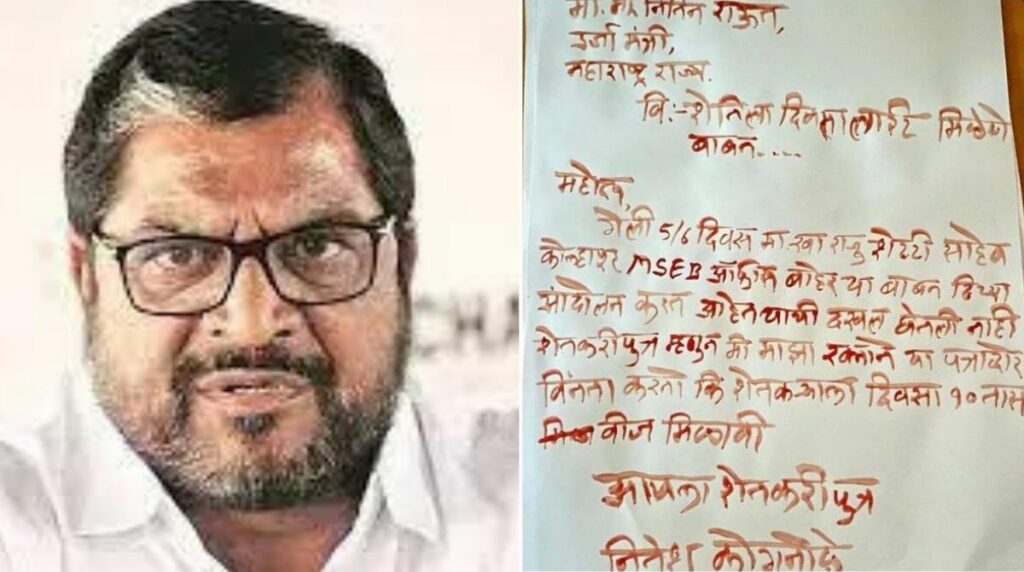 मा. ना. नितिन राऊत,
उर्जा मंत्री,
महाराष्ट्र राज्य.
वि:- शेतिला दिवसा लाईट मिळणे
बाबत.....
महोदय,
गेली 5/6 दिवस मा खा राजु शेट्टी साहेब
कोल्हापूर MSEB ऑफिस बाहेर या बाबत ठिय्या
आंदोलन करत आहेत याची दखल घेतली नाही
शेतकरी पुत्र म्हणुन मी माझा रक्ताने या पत्राद्वारे
विनंती करतो कि शेतकऱ्याला दिवसा १० तास
वीज मिळावी
आपला शेतकरी पुत्र
नितेश कोगनोळे
CHA